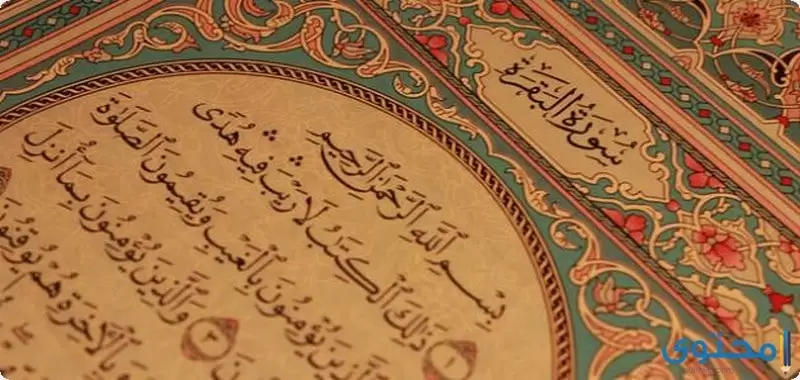 سُورَةُ البَقَرَةِ
بِسْمِ اللَّهِ الرَّحْمَٰنِ الرَّحِيمِ
ذَٰلِكَ الْكِتَٰبُ لَا رَيْبَ ۛ فِيهِ ۛ هُدًى
يُؤْمِنُونَ بِالْغَيْبِ وَيُقِيمُونَ الصَّلَوٰةَ
٣ وَالَّذِينَ يُؤْمِنُونَ بِمَا أُنزِلَ
وَبِالْآخِرَةِ هُمْ يُوقِنُونَ
محتوى